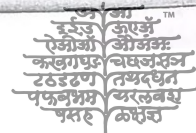 अ आ ™
इ.ई.उ ऊएॲ
ऐओऑ औअंअः
कखगघङ चछजझञ
टठडढण तथदधन
पफबभम यरलवश
षसह ळक्षज्ञ